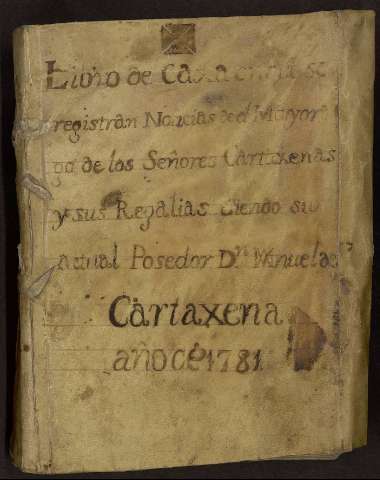 Libro de Caxa en que se
registran Noticias del Mayoraz
go de los Señores Cartaxenas
y sus Regalias siendo su
actual Posedor Dⁿ Manuel
Cartaxena
año de 1781